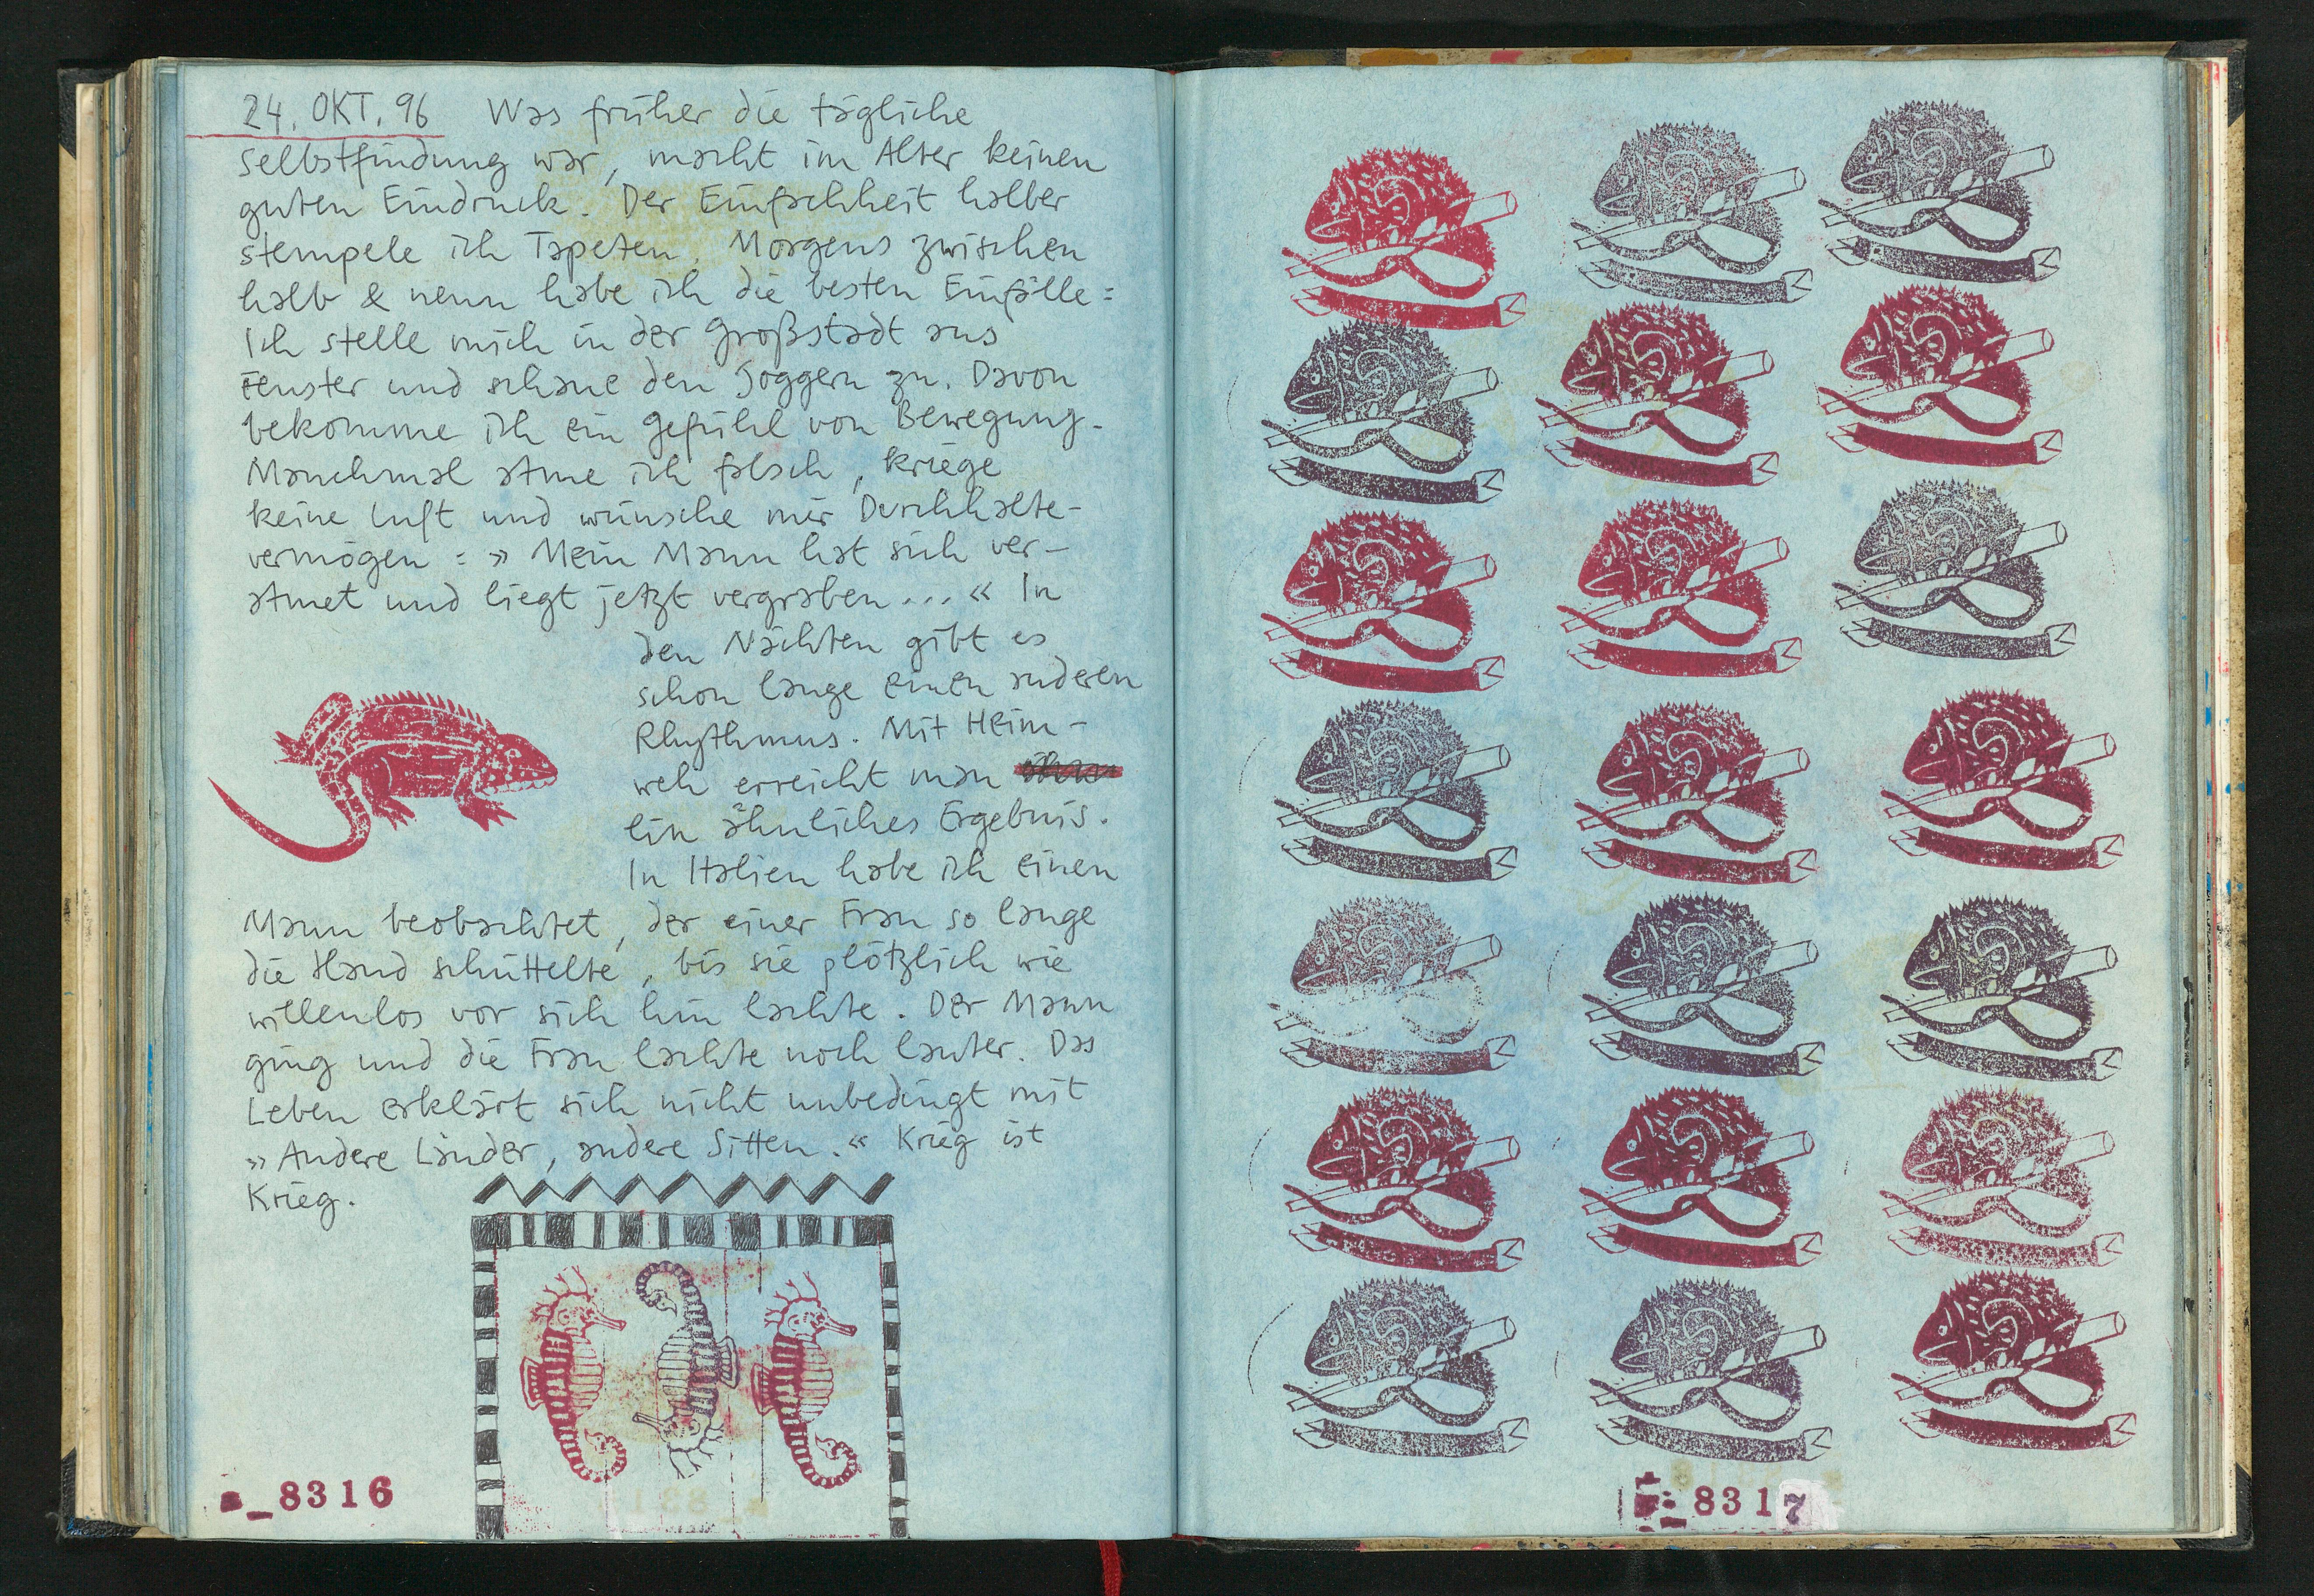 24. OKT. 96 Was früher die tägliche
Selbstfindung war, macht im Alter keinen
guten Eindruck. Der Einfachheit halber
stempele ich Tapeten. Morgens zwischen
halb & neun habe ich die besten Einfälle:
Ich stelle mich in der Großstadt ans
Fenster und schaue den Joggern zu. Davon
bekomme ich ein Gefühl von Bewegung.
Manchmal atme ich falsch, kriege
keine Luft und wünsche mir Durchhalte-
vermögen: »Mein Mann hat sich ver-
atmet und liegt jetzt vergraben...« In
den Nächten gibt es
schon lange einen anderen
Rhythmus. Mit Heim-
weh erreicht man
ein ähnliches Ergebnis.
In Italien habe ich einen
Mann beobachtet, der einer Frau so lange
die Hand schüttelte, bis sie plötzlich wie
willenlos vor sich hin lachte. Der Mann
ging und die Frau lachte noch lauter. Das
Leben erklärt sich nicht unbedingt mit
»Andere Länder, andere Sitten.« Krieg ist
Krieg.
8316
8317